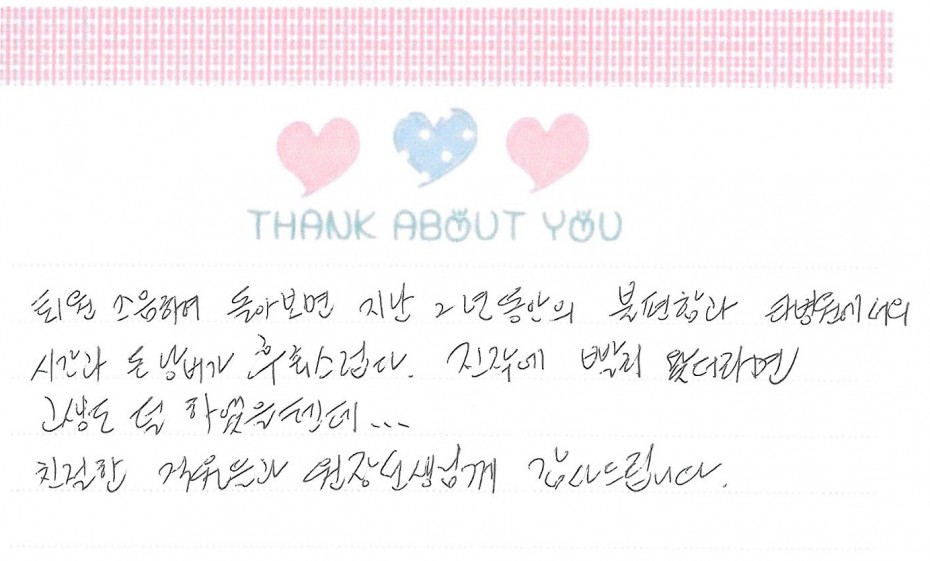 THANK ABOUT YOU
퇴원 즈음하여 돌아보면 지난 2년 동안의 불편함과 타병원에서의
시간과 돈 낭비가 후회스럽다. 진작에 빨리 왔더라면
고생도 덜 하였을텐데...
친절한 직원분과 원장선생님께 감사드립니다.